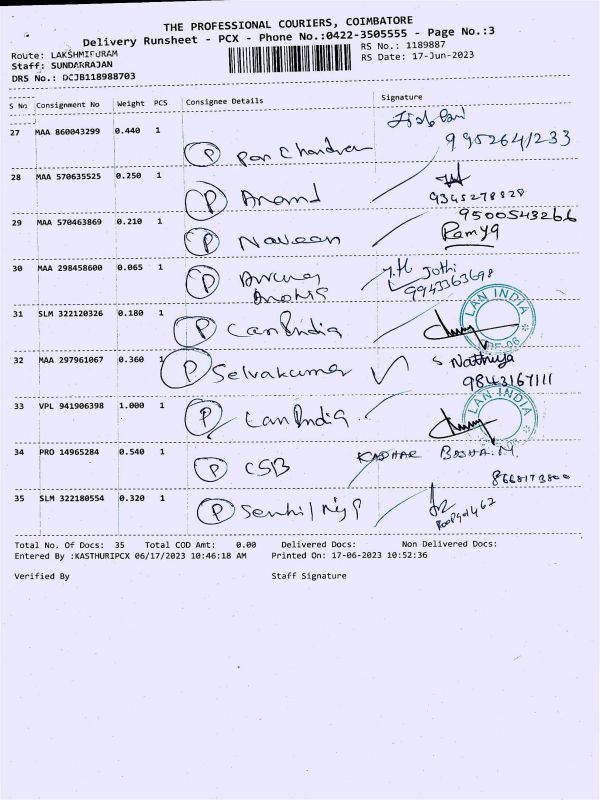 THE PROFESSIONAL COURIERS, COIMBATORE
Delivery Runsheet - PCX - Phone No.:0422-3505555 - Page No.:3
Route: LAKSHMIPURAM
RS No.: 1189887
Staff: SUNDARRAJAN
RS Date: 17-Jun-2023
DRS No.: DCJB118988703
S No Consignment No Weight PCS Consignee Details Signature
27 MAA 860043299 0.440 1
P Pon Chandran 9952641233
28 MAA 570635525 0.250 1
P Anand 9345278828
29 MAA 570463869 0.210 1 9500543266
P Naveen Ramya
30 MAA 298458600 0.065 1
P Jothi
9943363698
31 SLM 322120326 0.180 1
P Can India LAN INDIA
32 MAA 297961067 0.360 1 S Nathiya
P Selvakumar 9843167111
33 VPL 941906398 1.000 1
P Lan India LAN INDIA
34 PRO 14965284 0.540 1 KADHAR BASHA.M.
P CSB 8668173800
35 SLM 322180554 0.320 1
P Senthil
Total No. Of Docs: 35 Total COD Amt: 0.00 Delivered Docs: Non Delivered Docs:
Entered By :KASTHURIPCX 06/17/2023 10:46:18 AM Printed On: 17-06-2023 10:52:36
Verified By Staff Signature